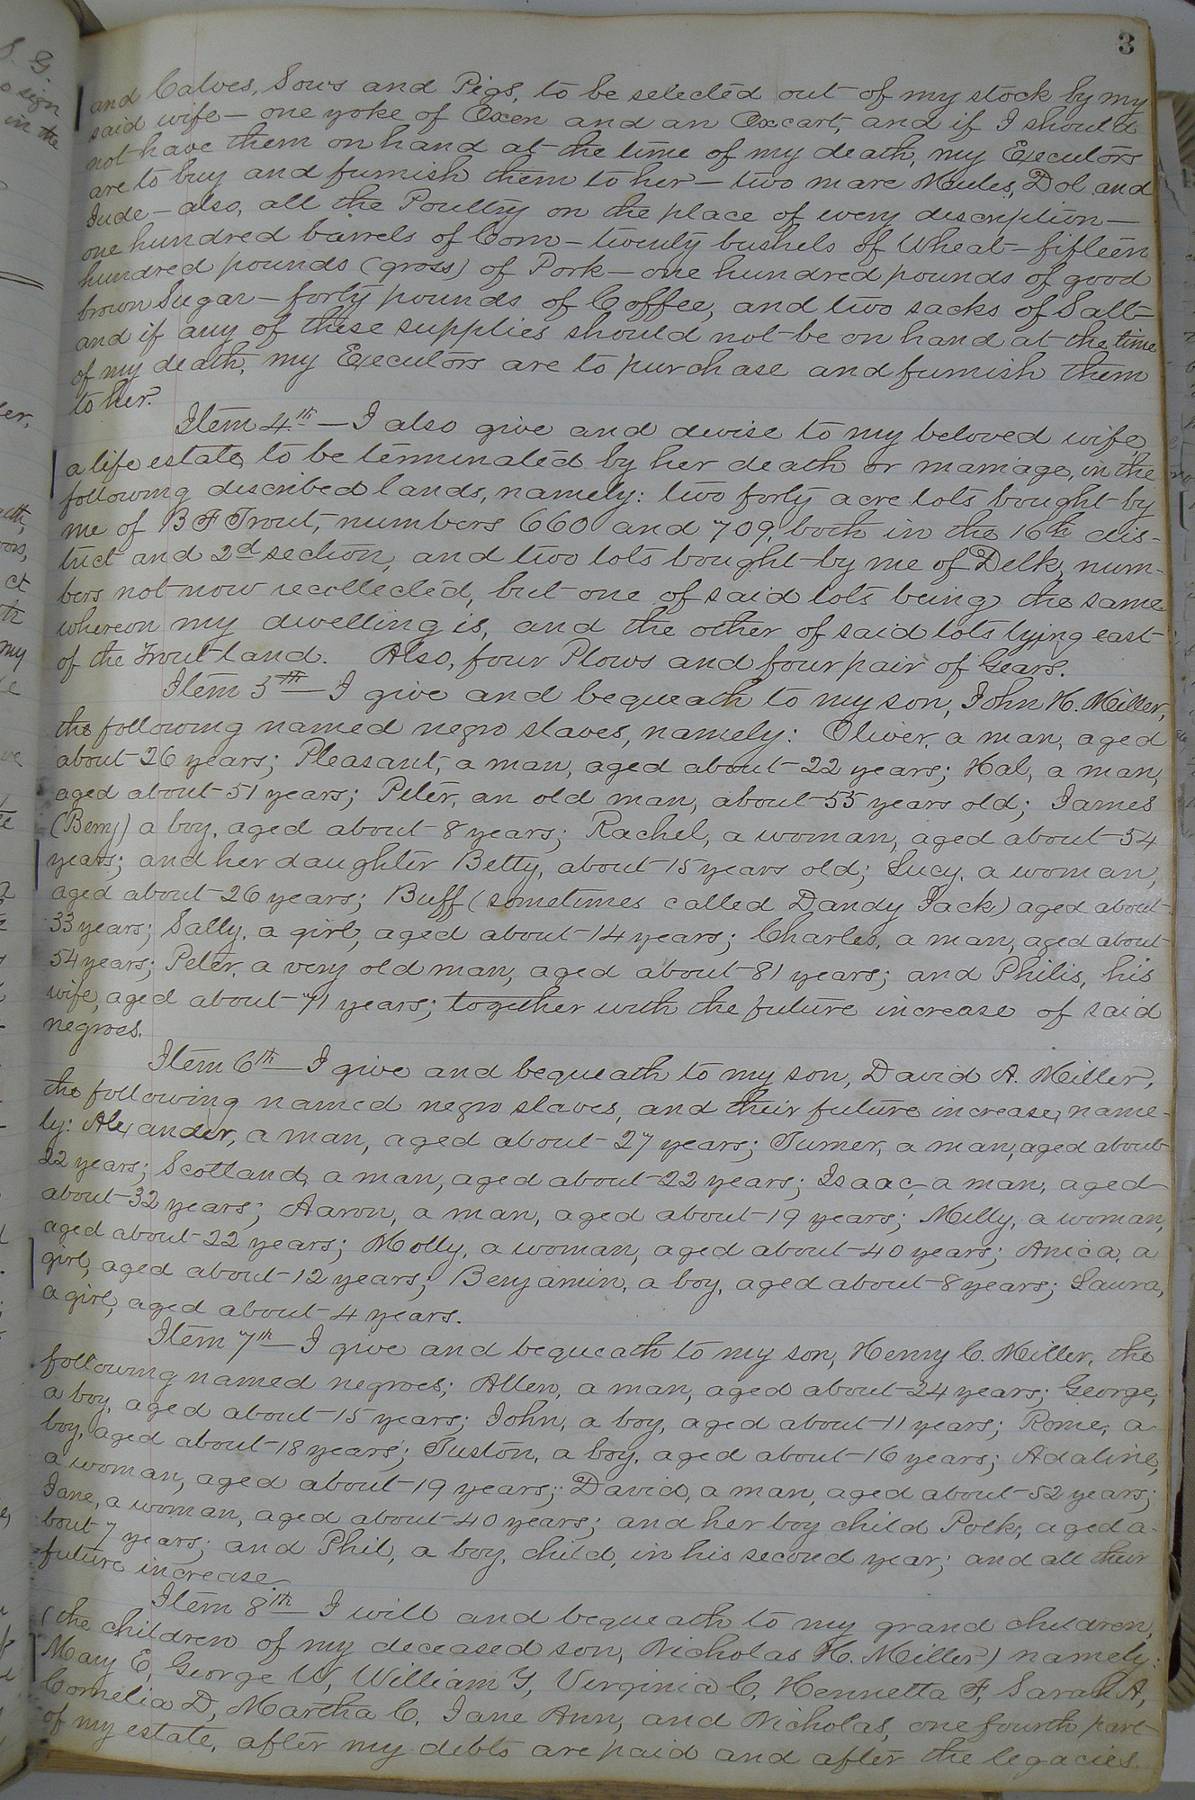 3
S. G.
o sign
in the
and Calves, Sows and Pigs, to be selected out of my stock by my
said wife – one yoke of Oxen and an Oxcart, and if I should
not have them on hand at the time of my death, my Executors
are to buy and furnish them to her – two mare Mules, Dol and
Jude – also, all the Poultry on the place of every description –
one hundred barrels of Corn – twenty bushels of Wheat – fifteen
hundred pounds (gross) of Pork – one hundred pounds of good
brown Sugar – forty pounds of Coffee, and two sacks of Salt –
and if any of these supplies should not be on hand at the time
of my death, my Executors are to purchase and furnish them
to her.
Item 4th – I also give and devise to my beloved wife,
a life estate, to be terminated by her death or marriage, in the
following described lands, namely: two forty acre lots bought by
me of B F Trout, numbers 660 and 709, both in the 16th dis-
trict and 2d section, and two lots bought by me of Delk, num-
bers not now recollected, but one of said lots being the same
whereon my dwelling is, and the other of said lots lying east
of the Trout land. Also, four Plows and four pair of Gears.
Item 5th – I give and bequeath to my son, John H. Miller,
the following named negro slaves, namely: Oliver, a man, aged
about 26 years; Pleasant, a man, aged about 22 years; Hal, a man,
aged about 51 years; Peter, an old man, about 55 years old; James
(Berry) a boy, aged about 8 years; Rachel, a woman, aged about 54
years; and her daughter Betty, about 15 years old; Lucy, a woman,
aged about 26 years; Buff (sometimes called Dandy Jack) aged about
33 years; Sally, a girl, aged about 14 years; Charles, a man, aged about
54 years; Peter, a very old man, aged about 81 years; and Philis, his
wife, aged about 71 years; together with the future increase of said
negroes.
Item 6th – I give and bequeath to my son, David A. Miller,
the following named negro slaves, and their future increase, name-
ly: Alexander, a man, aged about 27 years; Turner, a man, aged about
22 years; Scotland, a man, aged about 22 years; Isaac, a man, aged
about 32 years; Aaron, a man, aged about 19 years; Milly, a woman,
aged about 22 years; Molly, a woman, aged about 40 years; Anica, a
girl, aged about 12 years; Benjamin, a boy, aged about 8 years; Laura,
a girl, aged about 4 years.
Item 7th – I give and bequeath to my son, Henry C. Miller, the
following named negroes; Allen, a man, aged about 24 years; George,
a boy, aged about 15 years; John, a boy, aged about 11 years; Rome, a
boy, aged about 18 years; Tuston, a boy, aged about 16 years; Adaline,
a woman, aged about 19 years; David, a man, aged about 52 years;
Jane, a woman, aged about 40 years; and her boy child Polk, aged a-
bout 7 years; and Phil, a boy, child, in his second year; and all their
future increase.
Item 8th – I will and bequeath to my grand children,
(the children of my deceased son, Nicholas H. Miller) namely:
Mary E, George W, William Y, Virginia C, Hennetta F, Sarah A,
Cornelia D, Martha C, Jane Ann, and Nicholas, one fourth part
of my estate, after my debts are paid and after the legacies